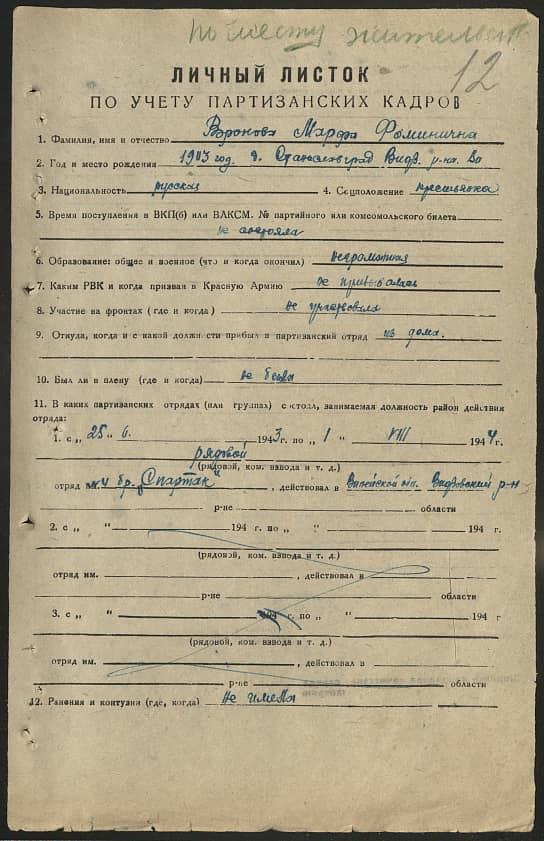 по месту жительст
12
ЛИЧНЫЙ ЛИСТОК
ПО УЧЕТУ ПАРТИЗАНСКИХ КАДРОВ
1. Фамилия, имя и отчество Воронова Марфа Фоминична
2. Год и место рождения 1903 год. д. Видз. р-на
3. Национальность русская 4. Соцположение крестьянка
5. Время поступления в ВКП(б) или ВЛКСМ. № партийного или комсомольского билета
не состояла
6. Образование: общее и военное (что и когда окончил) неграмотная
7. Каким РВК и когда призван в Красную Армию не призывалась
8. Участие на фронтах (где и когда) не участвовала
9. Откуда, когда и с какой должности прибыл в партизанский отряд из дома.
10. Был ли в плену (где и когда) не была
11. В каких партизанских отрядах (или группах) состоял, занимаемая должность район действия
отряда:
1. с „ 25 6. 1943 г. по „ 1 " VIII 1944 г.
рядовой
(рядовой, ком. взвода и т. д.)
отряд №4 бр. „Спартак", действовал в Вилейской обл. Видзовский р-н
р-не области
2. с „ " 194 г. по „ " 194 г.
(рядовой, ком. взвода и т. д.)
отряд им. , действовал в
р-не области
3. с „ " 194 г. по „ " 194 г
(рядовой, ком. взвода и т. д.)
отряд им. , действовал в
р-не области
12. Ранения и контузии (где, когда) не имела